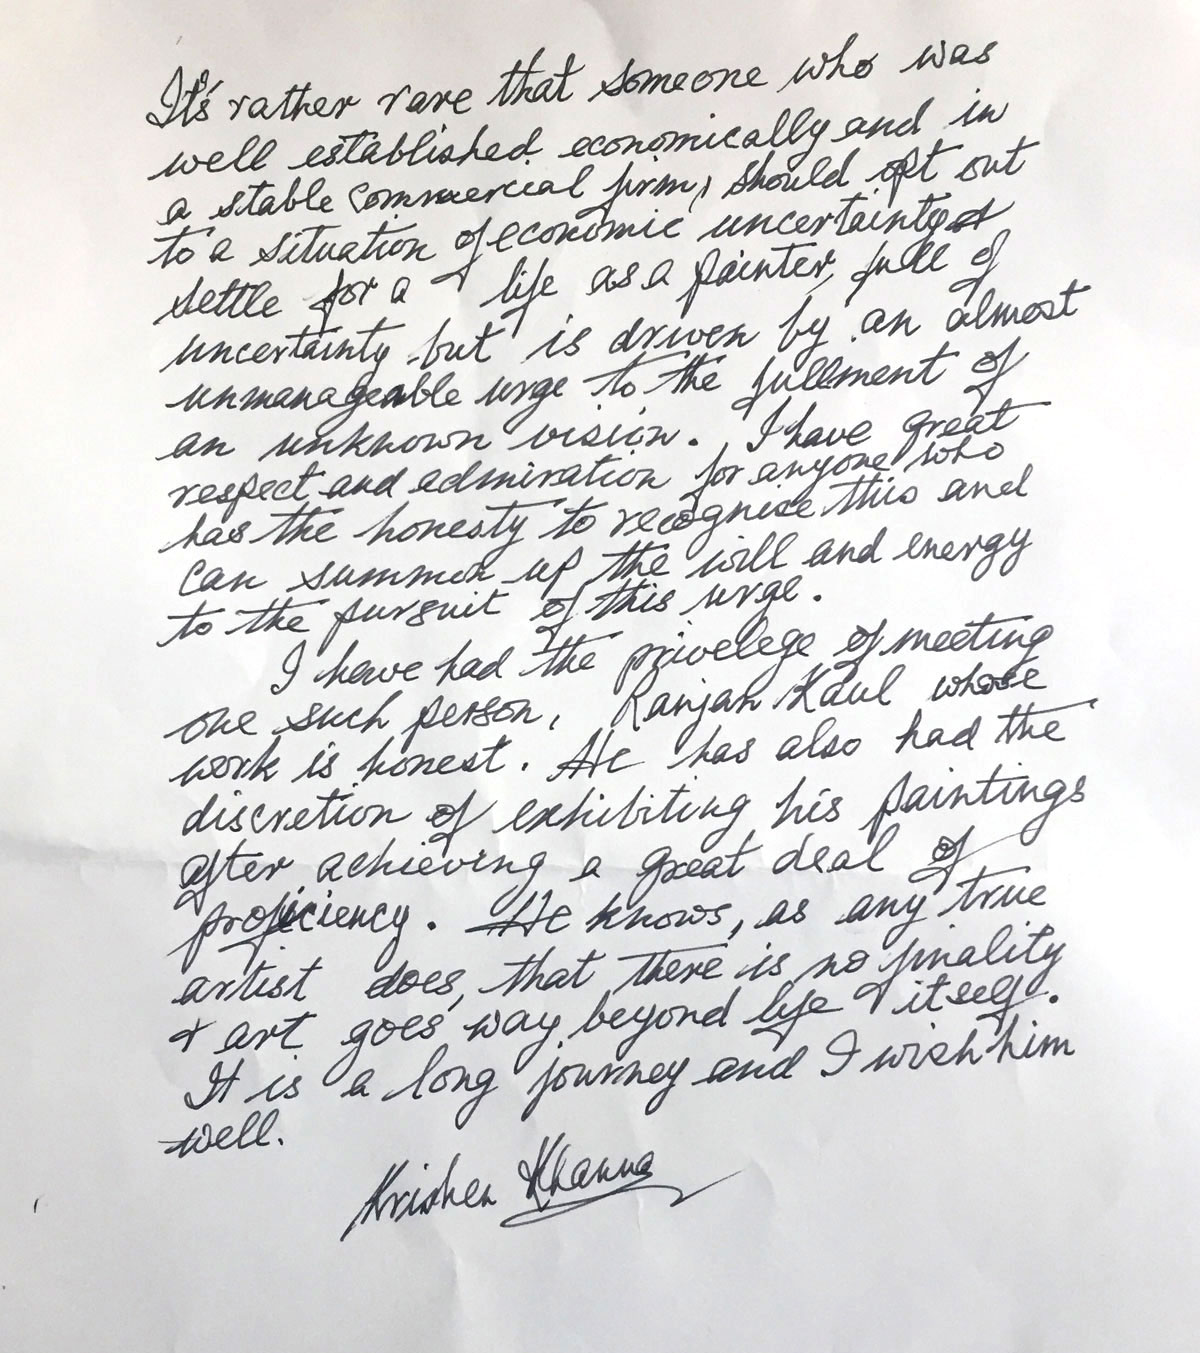 It's rather rare that someone who was
well established economically and in
a stable commercial firm, should opt out
to a situation of economic uncertainty &
settle for a life as a painter, full of
uncertainty but is driven by an almost
unmanageable urge to the fullment of
an unknown vision. I have great
respect and admiration for anyone who
has the honesty to recognise this and
can summon up the will and energy
to the pursuit of this urge.
I have had the privelege of meeting
one such person, Ranjan Kaul whose
work is honest. He has also had the
discretion of exhibiting his paintings
after achieving a great deal of
proficiency. He knows, as any true
artist does, that there is no finality
& art goes way beyond life itself.
It is a long journey and I wish him
well.
Krishen Khanna